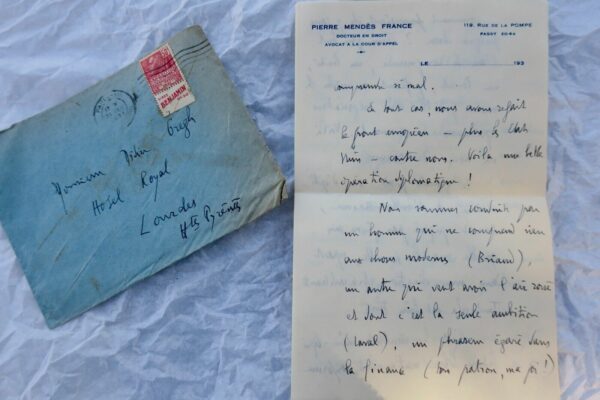 Monsieur Didier Gregh
Hôtel Royal
Lourdes
Htes Pyrénées
BENJAMIN
PIERRE MENDÈS FRANCE
DOCTEUR EN DROIT
AVOCAT À LA COUR D'APPEL
119, RUE DE LA POMPE
PASSY
LE
193
mal.
En tout cas, nous avons refait
le front européen – plus les Etats
Unis – contre nous. Voilà une belle
opération diplomatique !
Nous sommes conduits par
un homme qui ne comprend rien
aux choses modernes (Briand),
un autre qui veut avoir l'air rosse
et dont c'est la seule ambition
(Laval), un phraseur égaré dans
la finance (ton patron, ma foi !)